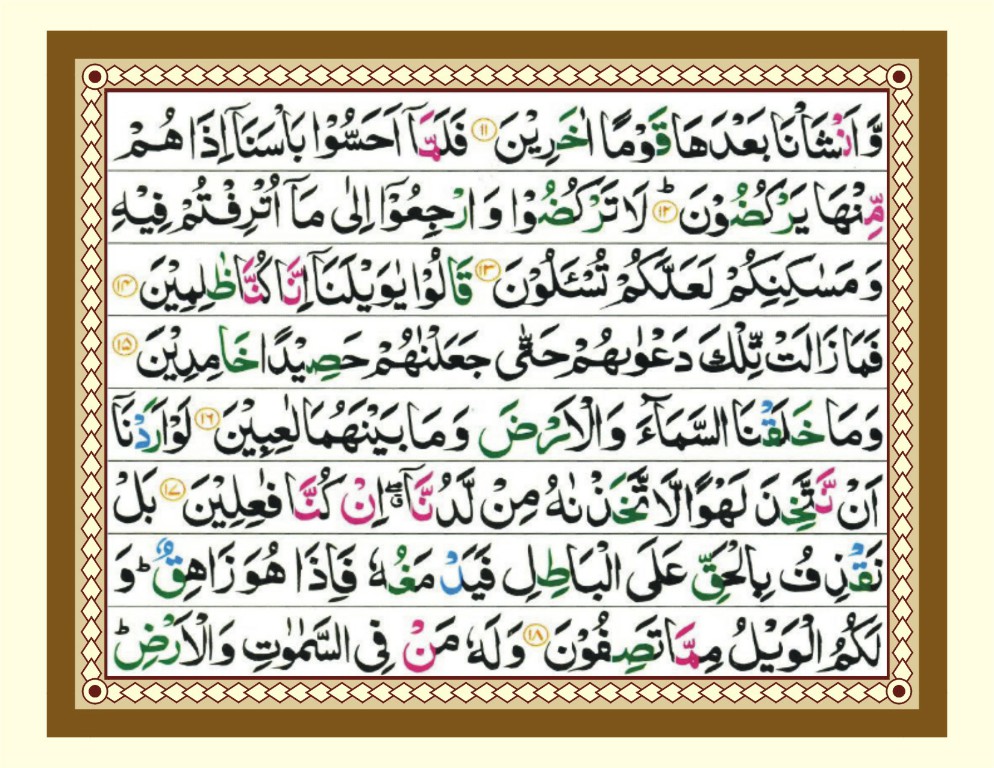 وَّ اَنْشَاْنَا بَعْدَهَا قَوْمًا اٰخَرِيْنَ ﴿۱۱﴾ فَلَمَّاۤ اَحَسُّوْا بَاْسَنَاۤ اِذَا هُمْ
مِّنْهَا يَرْكُضُوْنَ ﴿۱۲﴾ؕ لَا تَرْكُضُوْا وَ ارْجِعُوْۤا اِلٰى مَاۤ اُتْرِفْتُمْ فِيْهِ
وَ مَسٰكِنِكُمْ لَعَلَّكُمْ تُسْـَٔلُوْنَ ﴿۱۳﴾ قَالُوْا يٰوَيْلَنَاۤ اِنَّا كُنَّا ظٰلِمِيْنَ ﴿۱۴﴾
فَمَا زَالَتْ تِّلْكَ دَعْوٰىهُمْ حَتّٰى جَعَلْنٰهُمْ حَصِيْدًا خَامِدِيْنَ ﴿۱۵﴾
وَ مَا خَلَقْنَا السَّمَآءَ وَ الْاَرْضَ وَ مَا بَيْنَهُمَا لٰعِبِيْنَ ﴿۱۶﴾ لَوْ اَرَدْنَاۤ
اَنْ نَّتَّخِذَ لَهْوًا لَّاتَّخَذْنٰهُ مِنْ لَّدُنَّاۤ ۖۗ اِنْ كُنَّا فٰعِلِيْنَ ﴿۱۷﴾ بَلْ
نَقْذِفُ بِالْحَقِّ عَلَى الْبَاطِلِ فَيَدْمَغُهٗ فَاِذَا هُوَ زَاهِقٌ ؕ وَ
لَكُمُ الْوَيْلُ مِمَّا تَصِفُوْنَ ﴿۱۸﴾ وَ لَهٗ مَنْ فِى السَّمٰوٰتِ وَ الْاَرْضِ ؕ